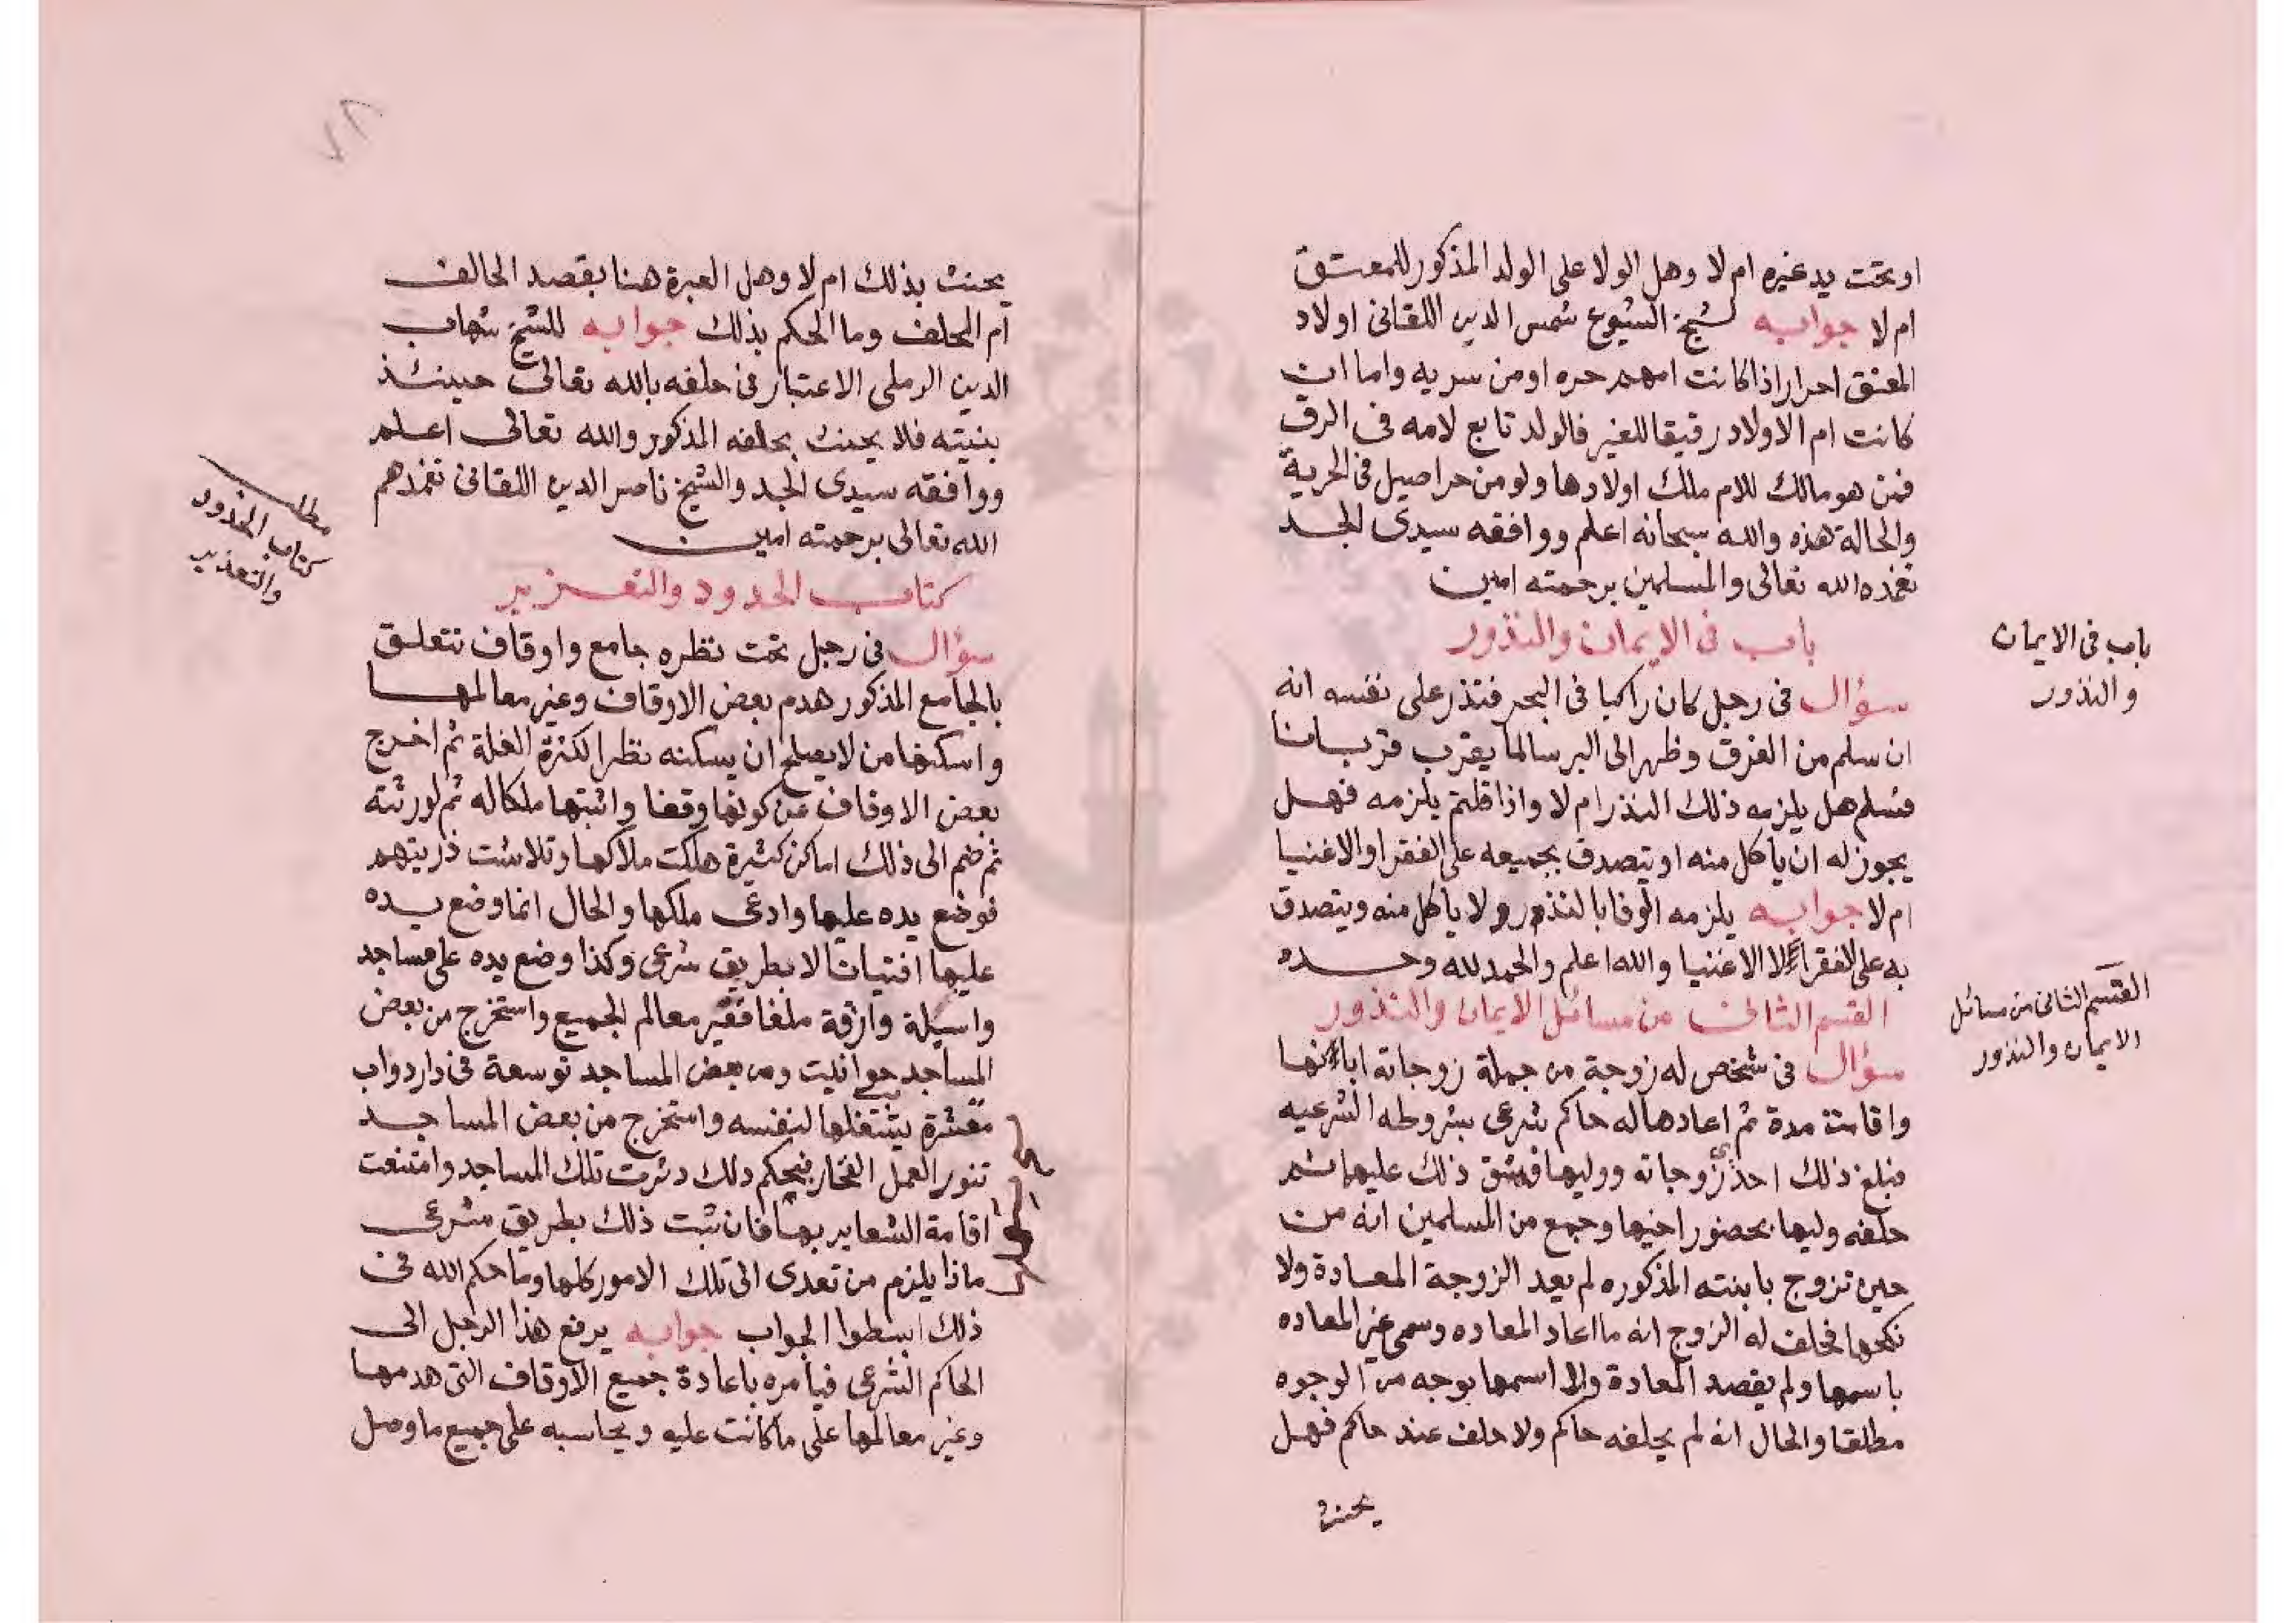 او تحت يد غيره ام لا وهل الولا على الولد المذكور للمعتق
ام لا جوابه لشيخ الشيوخ شمس الدين اللقانى اولاد
المعتق احرار اذا كانت امهم حره او من سريه واما ان
كانت ام الاولاد رقيقا للغير فالولد تابع لامه فى الرق
فمن هو مالك للام ملك اولادها ولو من حر اصيل فى الحرية
والحالة هذه والله سبحانه اعلم ووافقه سيدى الجد
تغمده الله تعالى والمسلمين برحمته امين
باب فى الايمان والنذور
باب فى الايمان
والنذور
سؤال فى رجل كان راكبا فى البحر فنذر على نفسه انه
ان سلم من الغرق وظهر الى البر سالما يقرب قربانا
فسلم هل يلزمه ذلك النذر ام لا واذا قلتم يلزمه فهل
يجوز له ان ياكل منه او يتصدق بجميعه على الفقرا والاغنيا
ام لا جوابه يلزمه الوفا بالنذور ولا ياكل منه ويتصدق
به على الفقراء لا الاغنيا والله اعلم والحمد لله وحده
القسم الثانى من مسائل الايمان والنذور
القسم الثانى من مسائل
الايمان والنذور
سؤال فى شخص له زوجة من جملة زوجاته ابانها
واقامت مدة ثم اعادها له حاكم شرعى بشروطه الشرعيه
فبلغ ذلك احدى زوجاته ووليها فشق ذلك عليهما ثم
حلفه وليها بحضور اخيها وجمع من المسلمين انه من
حين تزوج بابنته المذكوره لم يعد الزوجة المعادة ولا
نكحها فحلف له الزوج انه ما اعاد المعاده وسمى غير المعاده
باسمها ولم يقصد المعادة ولا اسمها بوجه من الوجوه
مطلقا والحال انه لم يحلفه حاكم ولا حلف عند حاكم فهل
يحنث
يحنث بذلك ام لا وهل العبرة هنا بقصد الحالف
ام المحلف وما الحكم بذلك جوابه للشيخ شهاب
الدين الرملى الاعتبار فى حلفه بالله تعالى حينئذ
بنيته فلا يحنث بحلفه المذكور والله تعالى اعلم
ووافقه سيدى الجد والشيخ ناصر الدين اللقانى تغمدهم
الله تعالى برحمته امين
كتاب الحدود والتعزير
مطلب
كتاب الحدود
والتعذير
سؤال فى رجل تحت نظره جامع واوقاف تتعلق
بالجامع المذكور هدم بعض الاوقاف وغير معالمها
واسكنها من لا يصلح ان يسكنه نظرا لكثرة الغلة ثم اخرج
بعض الاوقاف عن كونها وقفا واثبتها ملكا له ثم لورثته
ثم ضم الى ذلك اماكن كثيرة هلكت ملاكها وتلاشت ذريتهم
فوضع يده عليها وادعى ملكها والحال انما وضع يده
عليها افتياتا لا بطريق شرعى وكذا وضع يده على مساجد
معالم الجميع واستخرج من بعض
المساجد حوانيت ومن بعض المساجد توسعة فى دار دواب
يشتغلها لنفسه واستخرج من بعض المساجد
تنور العمل الفخار فبحكم ذلك دثرت تلك المساجد وامتنعت
اقامة الشعاير بها فان ثبت ذلك بطريق شرعى
ماذا يلزم من تعدى الى تلك الامور كلها وما حكم الله فى
ذلك ابسطوا الجواب جوابه يرفع هذا الرجل الى
الحاكم الشرعى فيامره باعادة جميع الاوقاف التى هدمها
وغير معالمها على ما كانت عليه ويحاسبه على جميع ما وصل